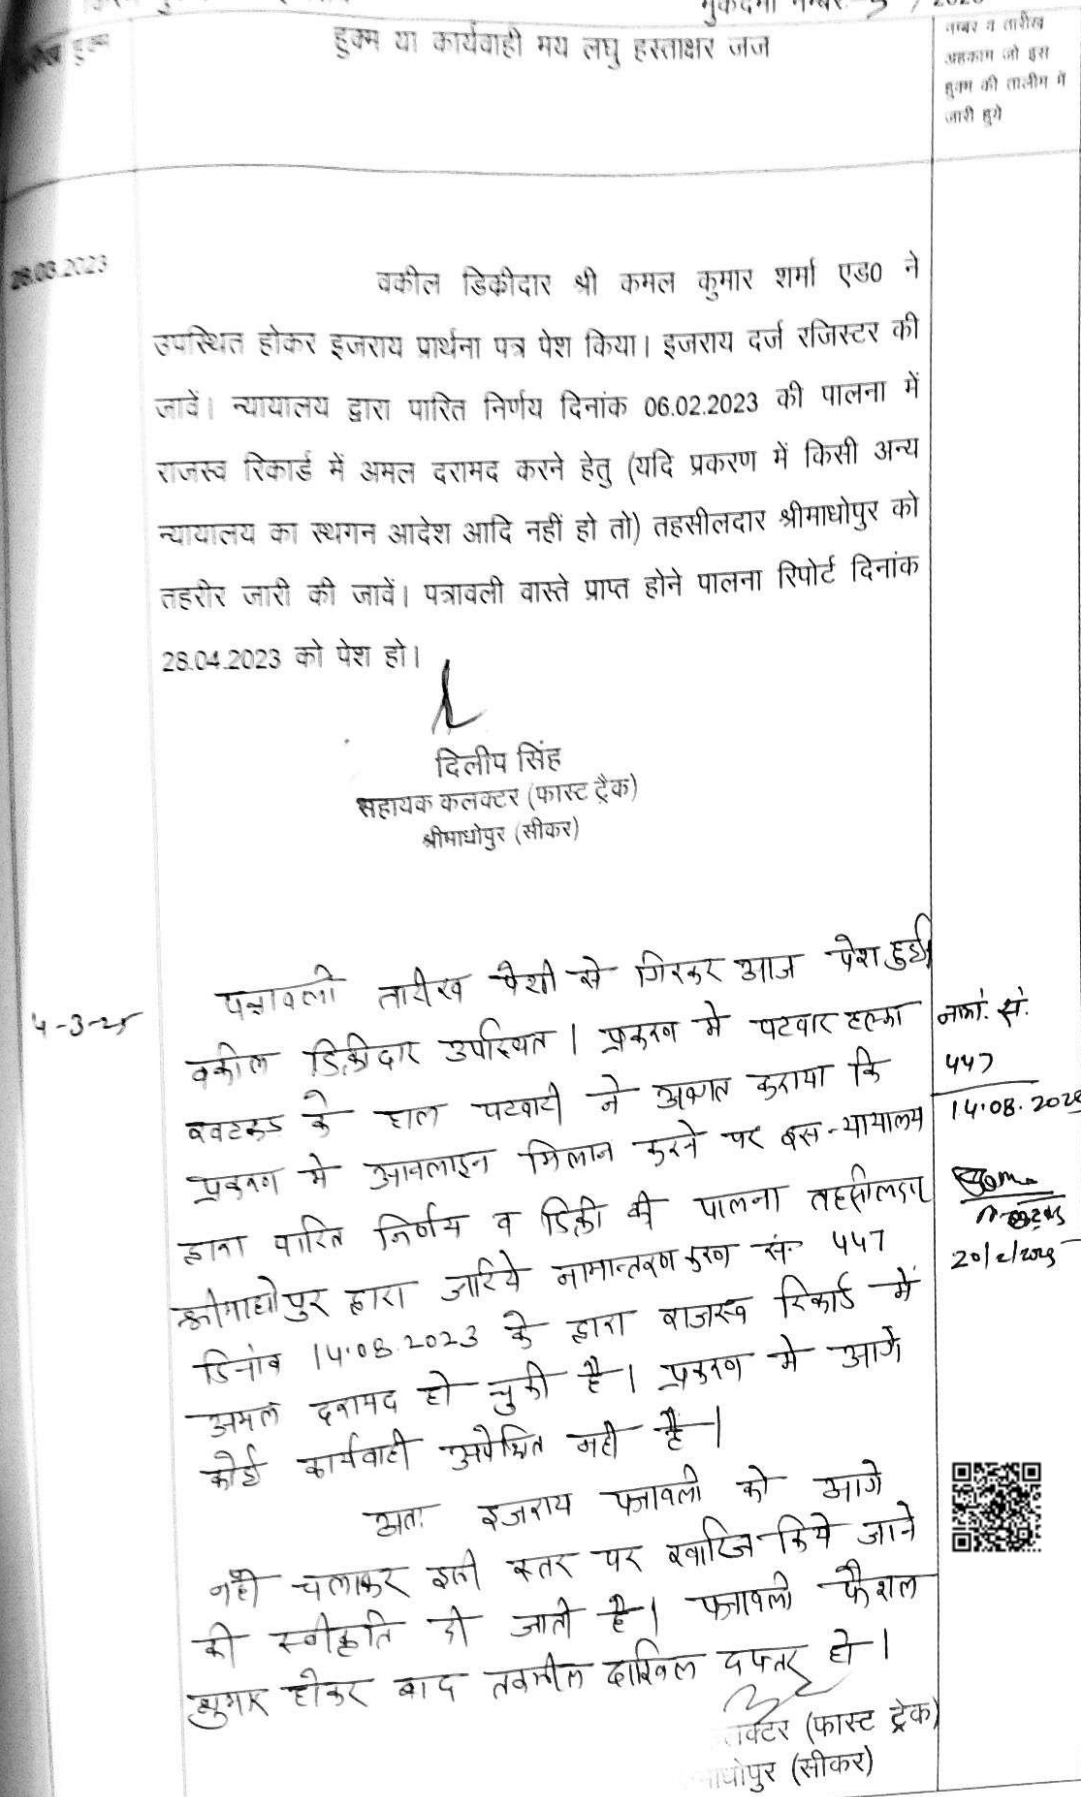 मुकदमा नम्बर
हुक्म या कार्यवाही मय लघु हस्ताक्षर जज
नम्बर व तारीख
अहकाम जो इस
हुक्म की तालीम में
जारी हुये
28.03.2023
वकील डिक्रीदार श्री कमल कुमार शर्मा एड0 ने
उपस्थित होकर इजराय प्रार्थना पत्र पेश किया। इजराय दर्ज रजिस्टर की
जावें। न्यायालय द्वारा पारित निर्णय दिनांक 06.02.2023 की पालना में
राजस्व रिकार्ड में अमल दरामद करने हेतु (यदि प्रकरण में किसी अन्य
न्यायालय का स्थगन आदेश आदि नहीं हो तो) तहसीलदार श्रीमाधोपुर को
तहरीर जारी की जावें। पत्रावली वास्ते प्राप्त होने पालना रिपोर्ट दिनांक
28.04.2023 को पेश हो।
दिलीप सिंह
सहायक कलक्टर (फास्ट ट्रैक)
श्रीमाधोपुर (सीकर)
4-3-25
पत्रावली तारीख पेशी से गिरकर आज पेश हुई।
वकील डिक्रीदार उपस्थित। प्रकरण मे पटवार हल्का
के हाल पटवारी ने अवगत कराया कि
प्रकरण मे आनलाइन मिलान करने पर इस न्यायालय
द्वारा पारित निर्णय व डिक्री की पालना तहसीलदार
श्रीमाधोपुर द्वारा जरिये नामान्तरण करण सं. 447
दिनांक 14.08.2023 के द्वारा राजस्व रिकार्ड में
अमल दरामद हो चुकी है। प्रकरण मे आगे
कोई कार्यवाही अपेक्षित नही है।
अतः इजराय पत्रावली को आगे
नही चलाकर इसी स्तर पर खारिज किये जाने
की स्वीकृति दी जाती है। पत्रावली फैशल
शुमार होकर बाद तकमील दाखिल दफ्तर हो।
क्टर (फास्ट ट्रेक)
धोपुर (सीकर)
नामां. सं.
447
14.08.202